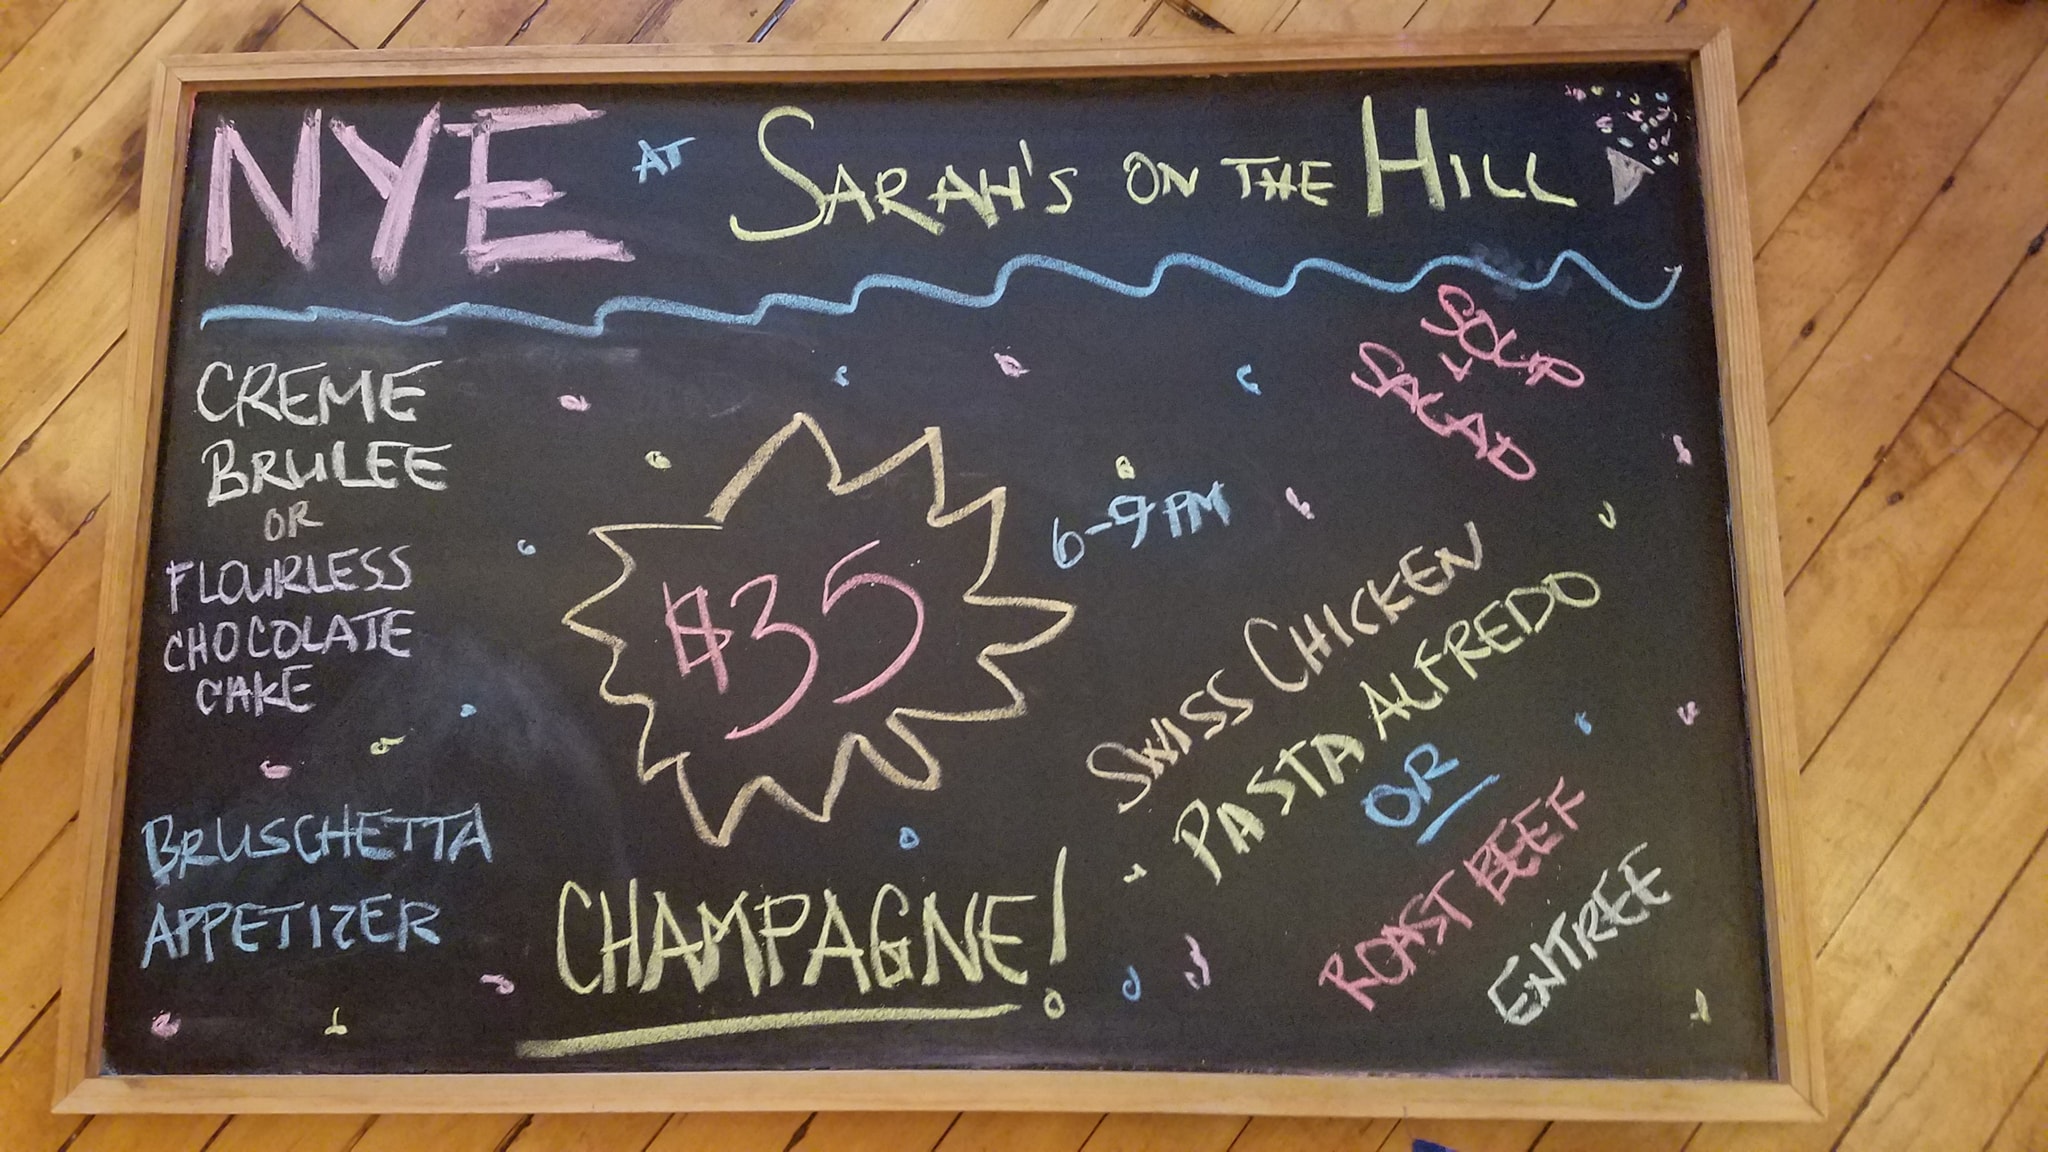 NYE AT SARAH'S ON THE HILL
CREME
BRULEE
OR
FLOURLESS
CHOCOLATE
CAKE
BRUSCHETTA
APPETIZER
$35
6-9PM
CHAMPAGNE!
SOUP
+
SALAD
SWISS CHICKEN
PASTA ALFREDO
OR
ROAST BEEF
ENTREE